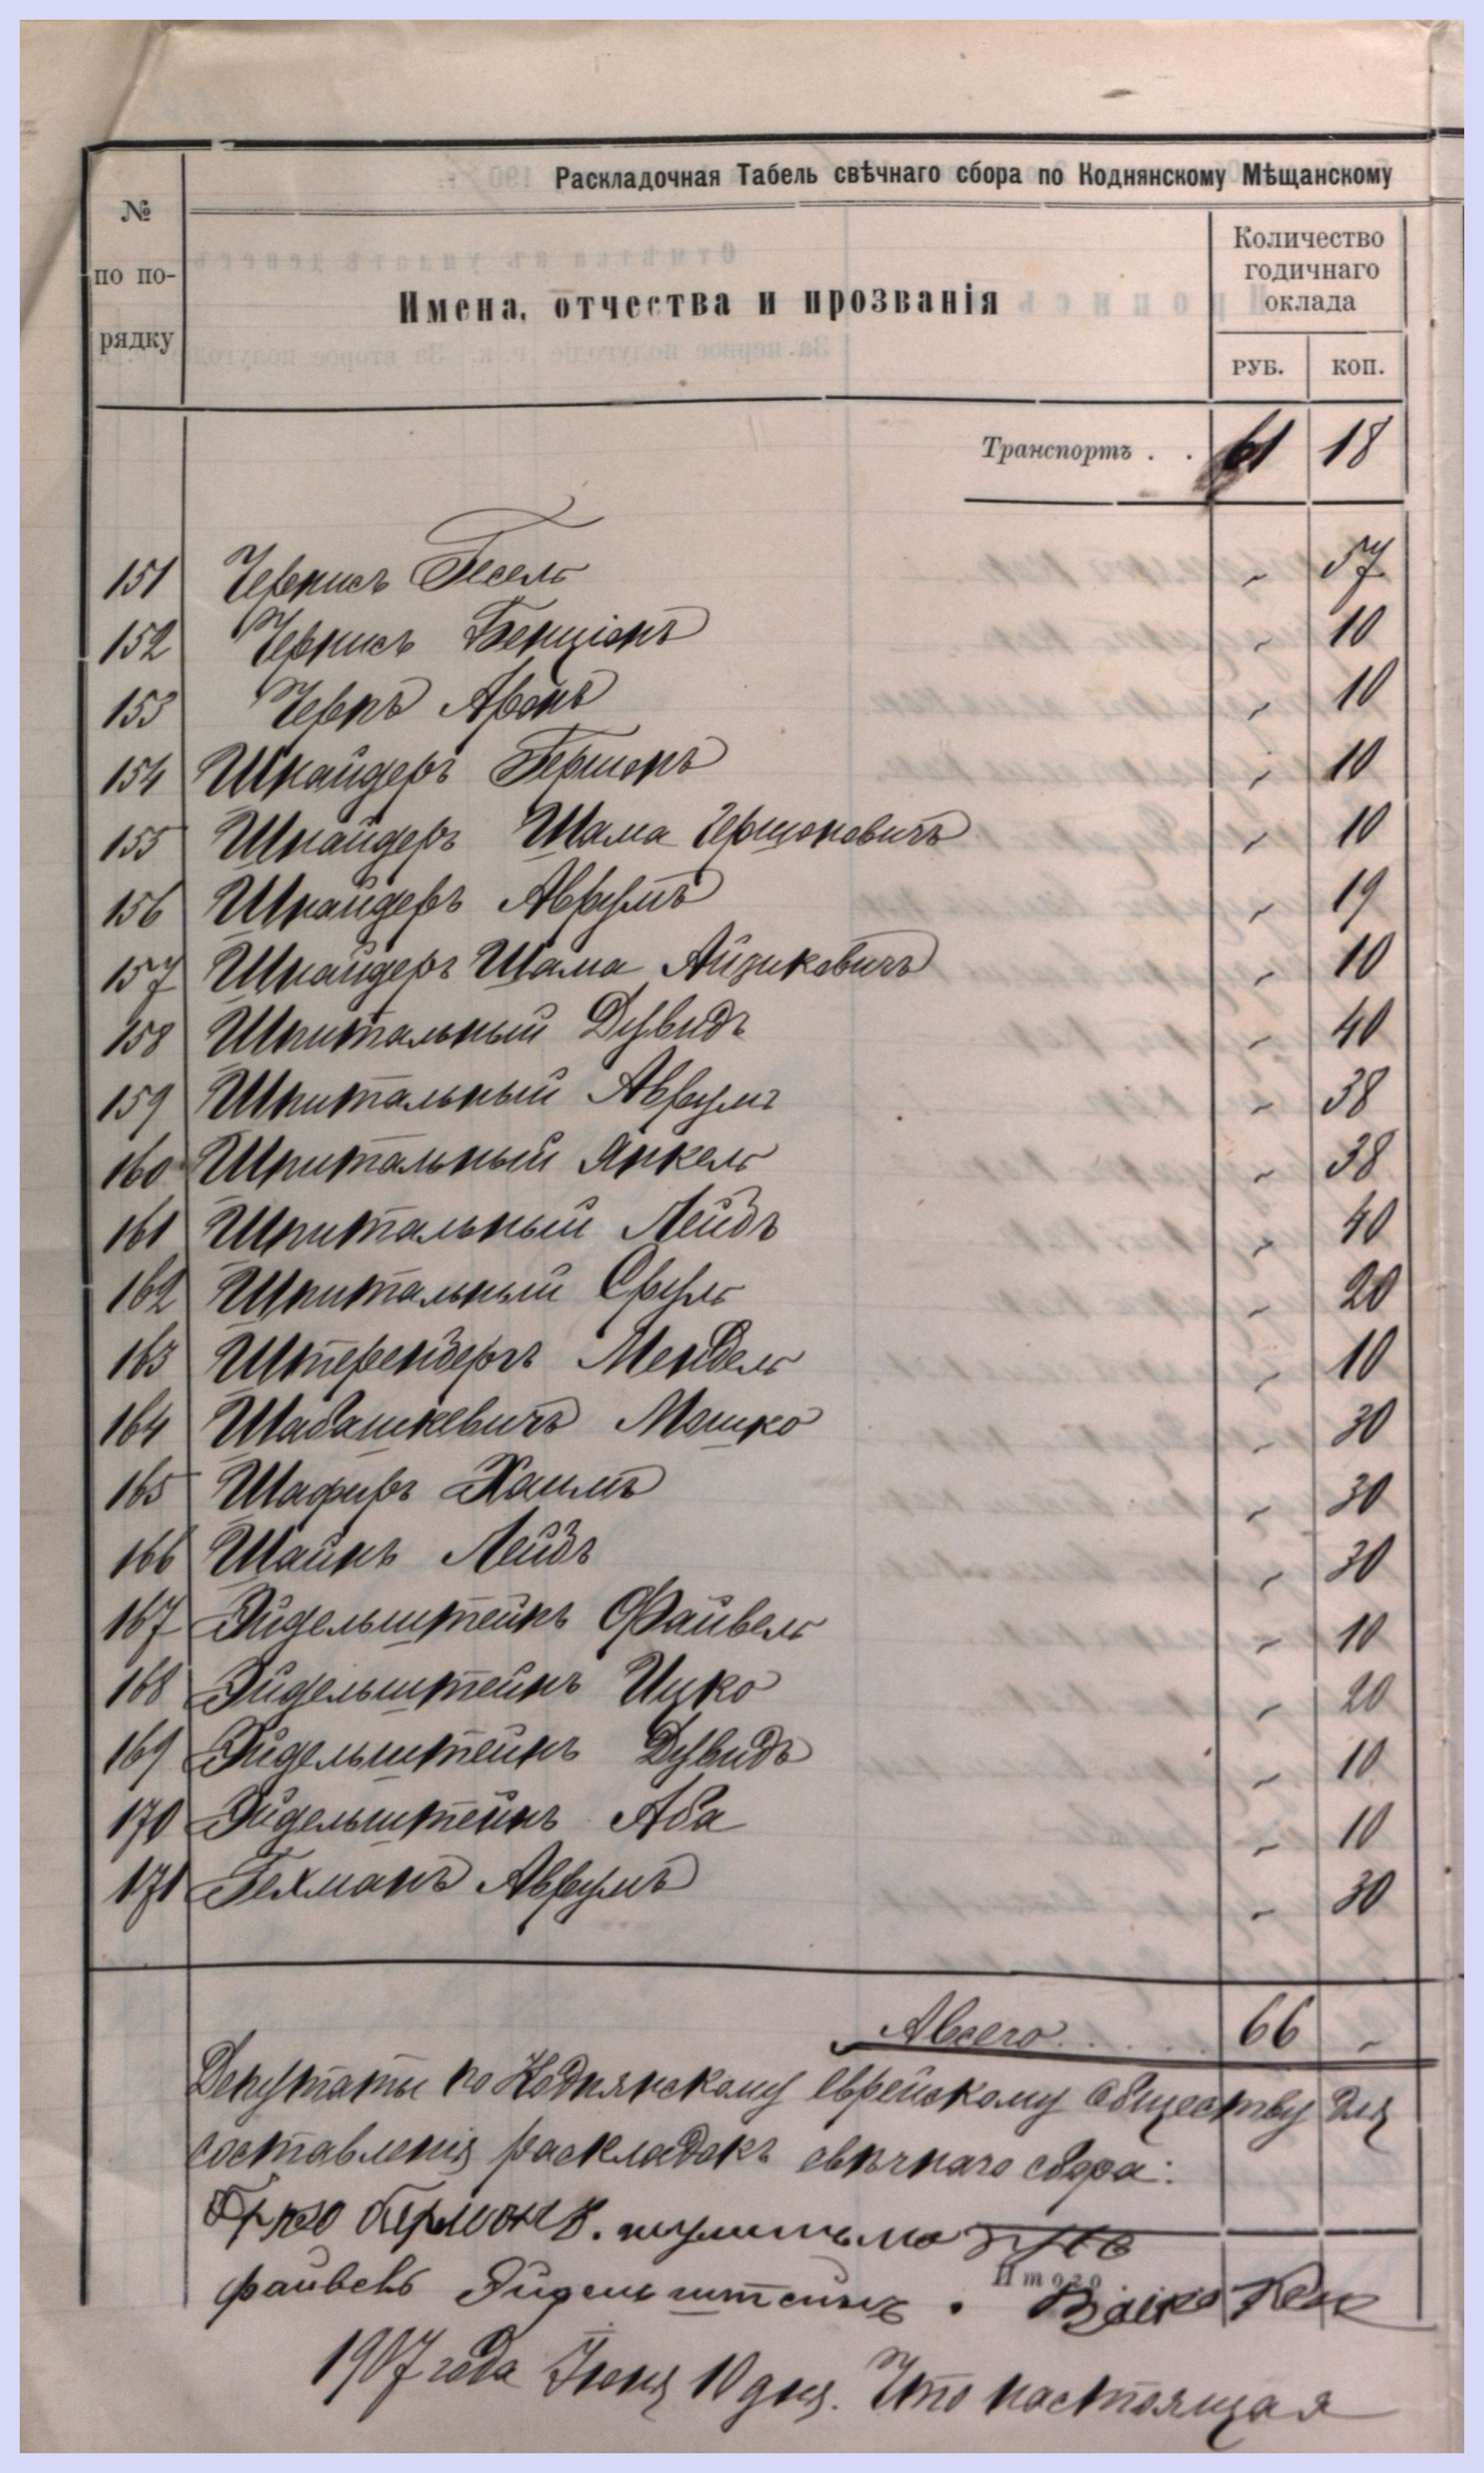 Раскладочная Табель свѣчнаго сбора по Коднянскому Мѣщанскому
№ по порядку
Имена, отчества и прозванія
Количество годичнаго оклада
РУБ. КОП.
Транспортъ . . 61 18
151 Чернисъ Гесель " 57
152 Чернисъ Бенціонъ " 10
153 Чернъ Аронъ " 10
154 Шнайдеръ Гершонъ " 10
155 Шнайдеръ Шама Гершоновичъ " 10
156 Шнайдеръ Аврумъ " 19
157 Шнайдеръ Шама Айзиковичъ " 10
158 Шпитальный Дувидъ " 40
159 Шпитальный Аврумъ " 38
160 Шпитальный Янкель " 38
161 Шпитальный Лейбъ " 40
162 Шпитальный Сруль " 20
163 Штеренбергъ Мендель " 10
164 Шабашкевичъ Мошко " 30
165 Шафиръ Хаимъ " 30
166 Шайнъ Лейбъ " 30
167 Эйдельштейнъ Файвель " 10
168 Эйдельштейнъ Ицко " 20
169 Эйдельштейнъ Дувидъ " 10
170 Эйдельштейнъ Аба " 10
171 Гехманъ Аврумъ " 30
А всего . . . . . 66 "
Депутаты по Коднянскому еврейскому обществу для
составленія раскладокъ свѣчнаго сбора:
файвель Эйдельштейнъ .
Итого
1907 года Іюня 10 дня. Что настоящая